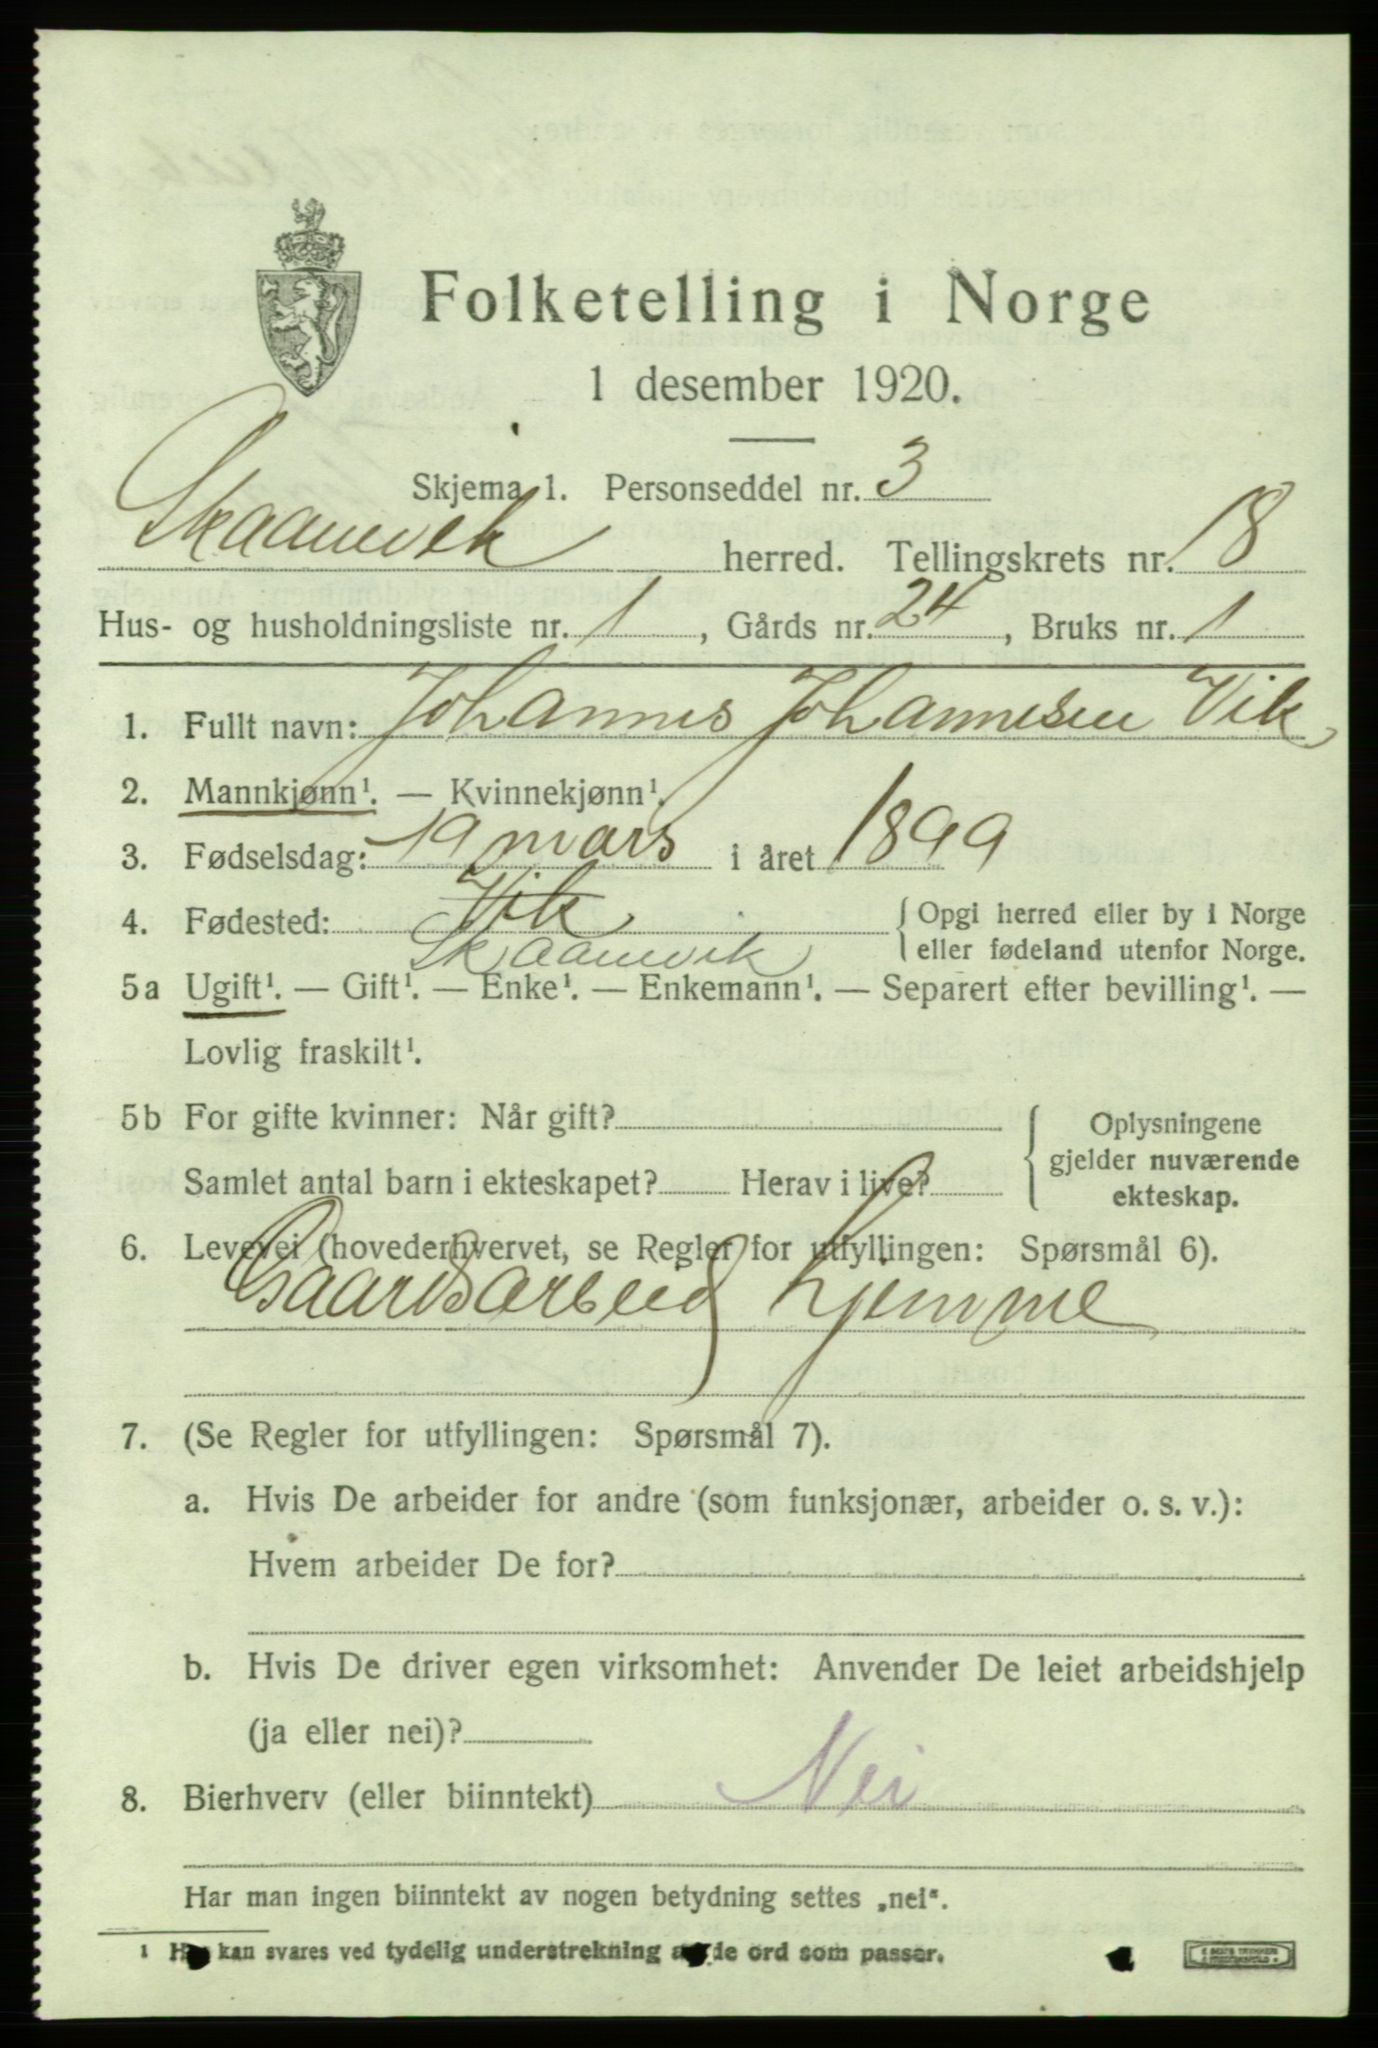 Folketelling i Norge
1 desember 1920.
Skjema 1. Personseddel nr. 3
Skaanevik herred. Tellingskrets nr. 18
Hus- og husholdningsliste nr. 1, Gårds nr. 24, Bruks nr. 1
1. Fullt navn: Johannes Johannesen Vik
2. Mannkjønn¹. — Kvinnekjønn¹.
3. Fødselsdag: 19 mars i året 1899
4. Fødested: Vik { Opgi herred eller by i Norge
Skaanevik eller fødeland utenfor Norge.
5a Ugift¹. — Gift¹. — Enke¹. — Enkemann¹. — Separert efter bevilling¹. —
Lovlig fraskilt¹.
5b For gifte kvinner: Når gift? { Oplysningene
gjelder nuværende
Samlet antal barn i ekteskapet? Herav i live?
ekteskap.
6. Levevei (hovederhvervet, se Regler for utfyllingen: Spørsmål 6).
Gaardsarbeid hjemme
7. (Se Regler for utfyllingen: Spørsmål 7).
a. Hvis De arbeider for andre (som funksjonær, arbeider o. s. v.):
Hvem arbeider De for?
b. Hvis De driver egen virksomhet: Anvender De leiet arbeidshjelp
(ja eller nei)?
8. Bierhverv (eller biinntekt) Nei
Har man ingen biinntekt av nogen betydning settes „nei“.
¹ Her kan svares ved tydelig understrekning av de ord som passer.